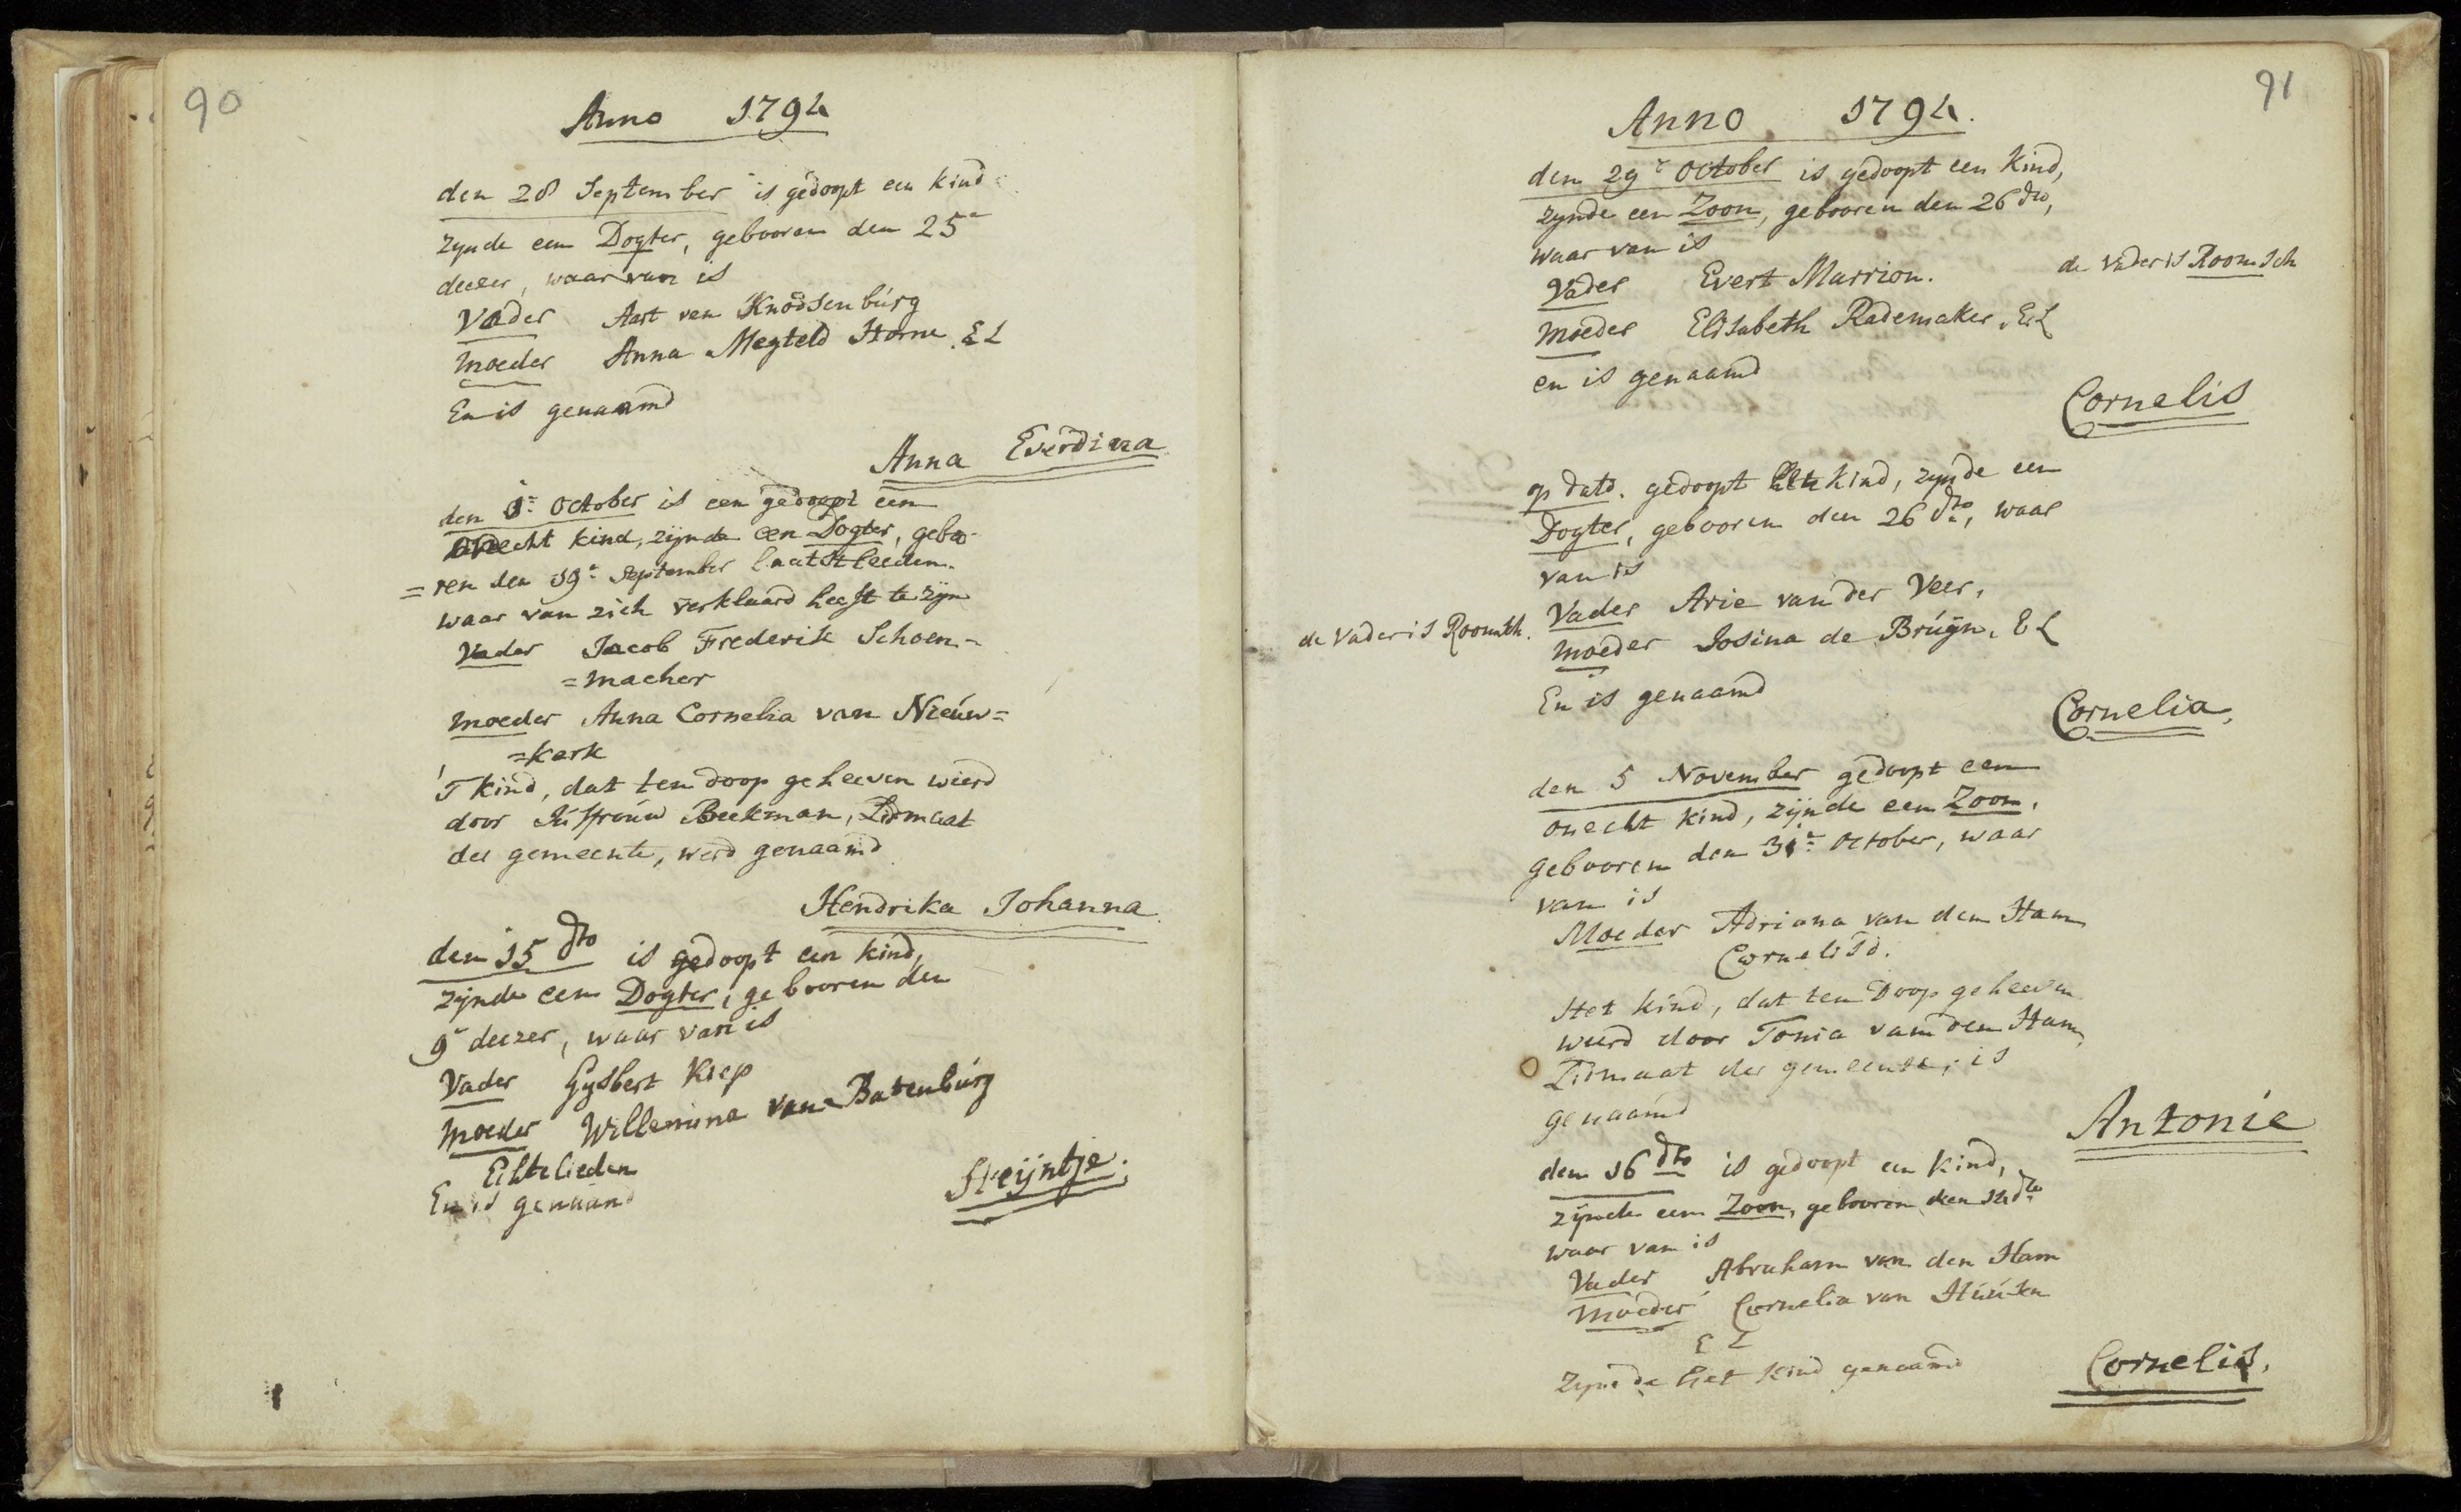 90
Anno 1794
den 28 September is gedoopt een kind
zynde een Dogter, gebooren den 25e
deezer, waar van is
Vader Aart van Knodsenbúrg
moeder Anna Megteld Horne E L
En is genaamd
Anna Everdina
den 1e October is een gedoopt een
onecht kind, zijnde een Dogter, geboo-
=ren den 19e September laatstleeden.
waar van zich verklaard heeft te zijn
Vader Jacob Frederik Schoen-
=macher
moeder Anna Cornelia van Nieúw=
=kerk
'T kind, dat ten doop geheeven wierd
door Júffroúw Beekman, Lidmaat
der gemeente, werd genaamd
Hendrika Johanna
den 15 dto is gedoopt een kind,
zijnde een Dogter, gebooren den
9e deezer, waar van is
Vader Gysbert Kiep
moeder Willemina van Batenbúrg
Echtelieden
En is genaamd
Steijntje.
91
Anno 1794.
den 29e October is gedoopt een kind,
zynde een Zoon, gebooren den 26 dto,
waar van is
Vader Evert Marrion.
de vader is Roomsch
moeder Elisabeth Rademaker, E L
en is genaamd
Cornelis
op dato. gedoopt een kind, zynde een
Dogter, gebooren den 26 dto, waar
van is
Vader Arie van der Veer,
de vader is Roomsch.
moeder Josina de Brúyn, E L
En is genaamd
Cornelia,
den 5 November gedoopt een
onecht kind, zijnde een Zoon,
gebooren den 31e October, waar
van is
Moeder Adriana van den Ham
Cornelisd.
Het kind, dat ten Doop geheeven
wierd door Tonia van den Ham,
Lidmaat der gemeente, is
genaamd
Antonie
den 16 dto is gedoopt een kind,
zijnde een Zoon, gebooren den 12 dto
waar van is
Vader Abraham van den Ham
moeder Cornelia van
E L
Zijnde het kind genaamd
Cornelis.